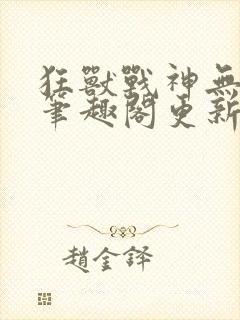 狂獸戰神無
筆趣閣更新
趙金鐸